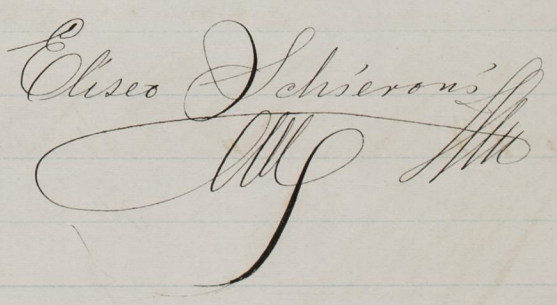 Eliseo Schieroni